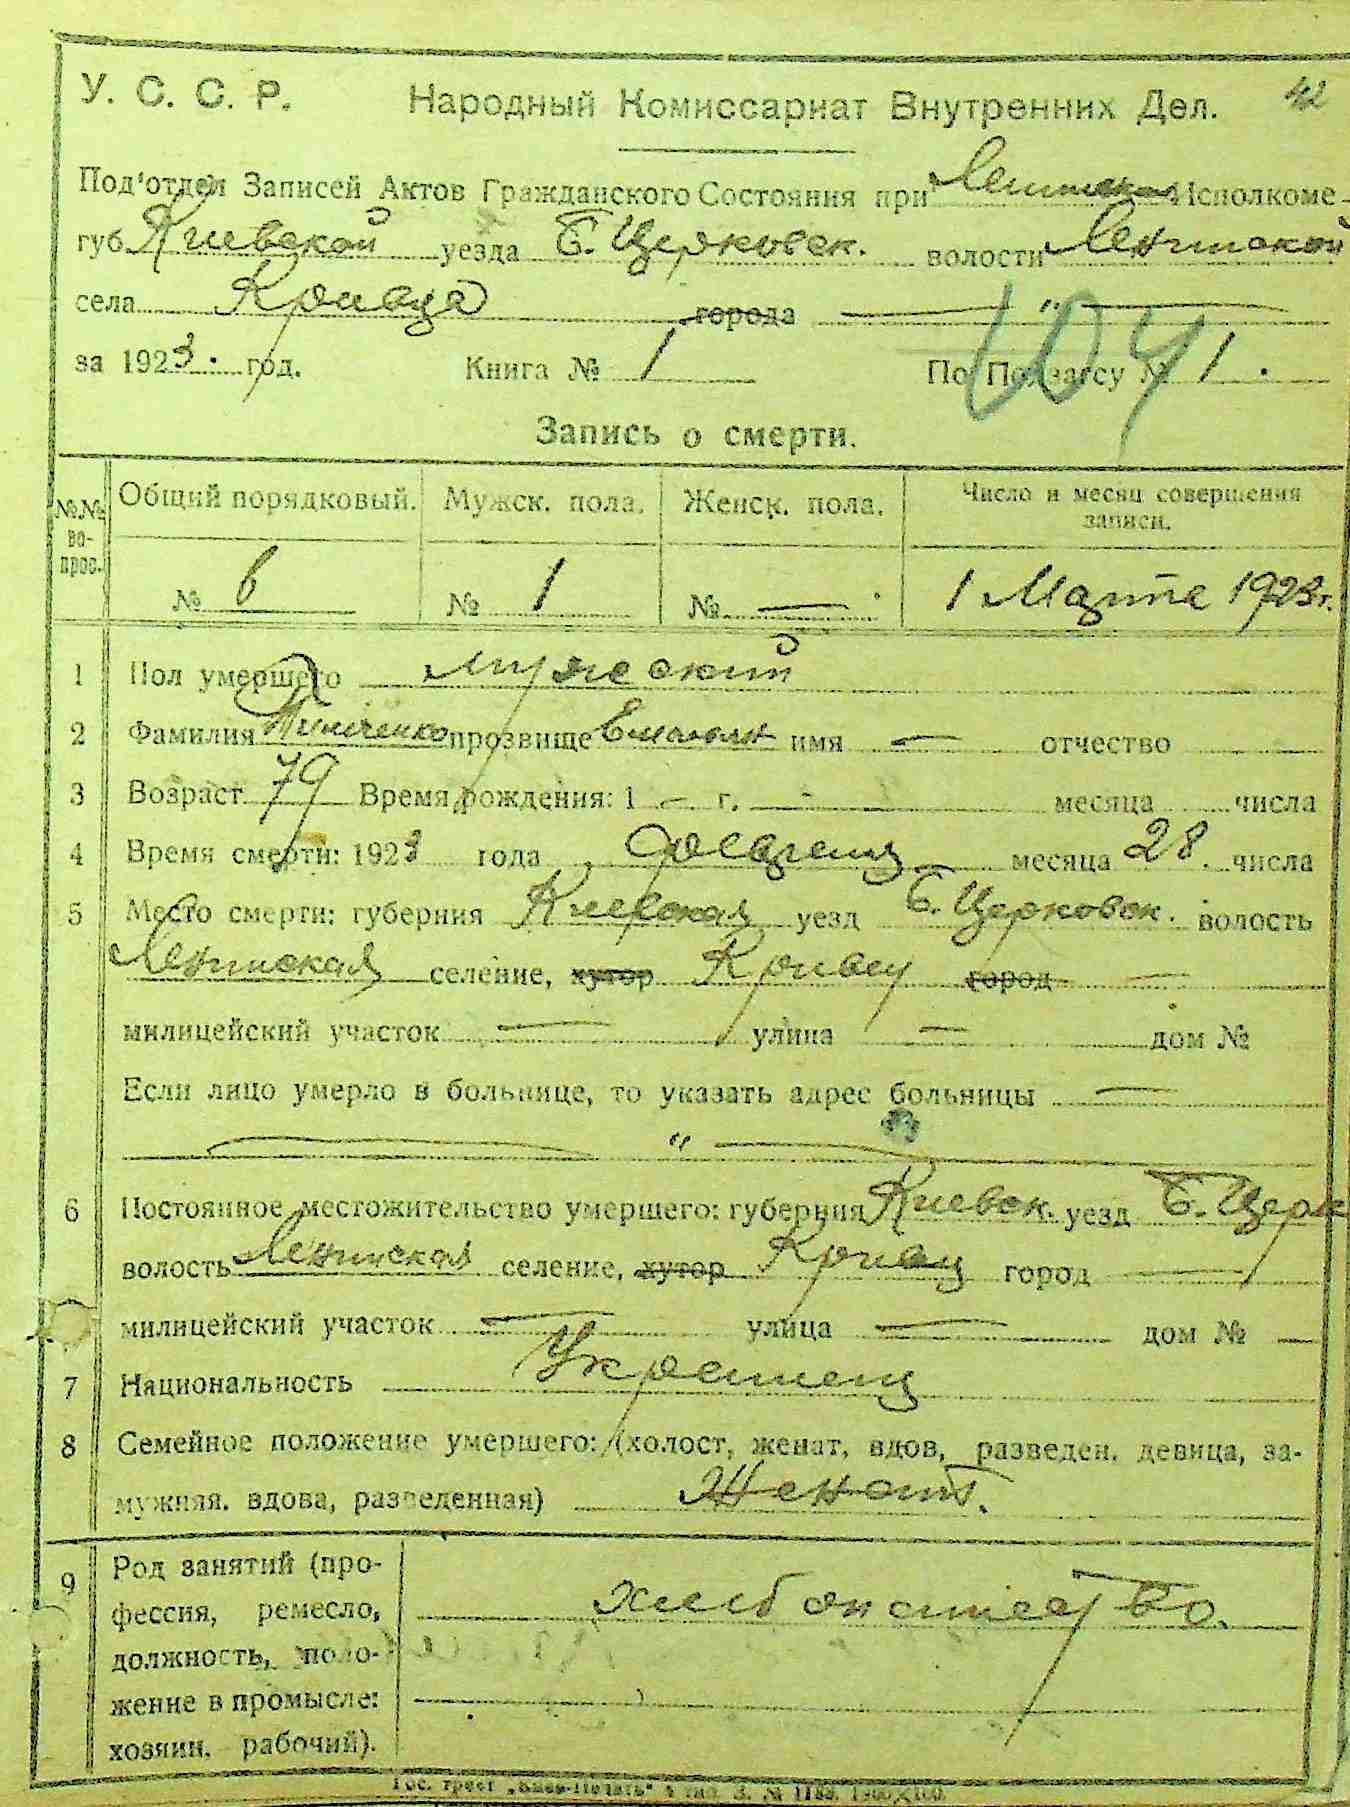 У. С. С. Р. Народный Комиссариат Внутренних Дел. 42
Под'отдел Записей Актов Гражданского Состояния при Исполкоме
губ. Киевской уезда Б. Церковск. волости Ленинской
села Кривца города "
за 1923. год. Книга № 1 По Подзагсу № 1.
104
Запись о смерти.
№№ вопрос. Общий порядковый. Мужск. пола. Женск. пола. Число и месяц совершения
записи.
№ 6 № 1 № — 1 Марта 1923 г.
1 Пол умершего мужеский
2 Фамилия прозвище Емельян имя — отчество
3 Возраст 79 Время рождения: 1 — г. — месяца числа
4 Время смерти: 1923 года февраля месяца 28 числа
5 Место смерти: губерния Киевская уезд Б. Церковск. волость
Ленинская селение, хутор Кривец город —
милицейский участок — улица — дом №
Если лицо умерло в больнице, то указать адрес больницы —
— " —
6 Постоянное местожительство умершего: губерния Киевск. уезд Б. Церк
волость Ленинская селение, хутор Кривец город —
милицейский участок — улица — дом № —
7 Национальность Украинец
8 Семейное положение умершего: (холост, женат, вдов, разведен, девица, за-
мужняя, вдова, разведенная) Женат.
9 Род занятий (про-
фессия, ремесло, хлебопашество.
должность, поло-
жение в промысле:
хозяин, рабочий).
Гос. трест „Киев-Печать" 4 тип. З. № 1188. 1900×100.